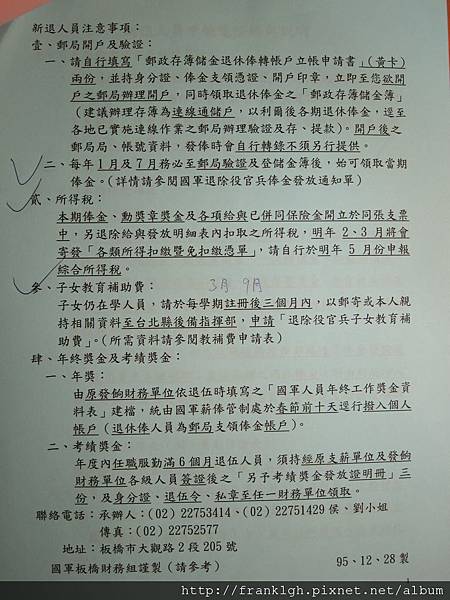 新退人員注意事項：
壹、郵局開戶及驗證：
一、請自行填寫「郵政存簿儲金退休俸轉帳戶立帳申請書」(黃卡)
兩份，並持身分證、俸金支領憑證、開戶印章，立即至您欲開
戶之郵局辦理開戶，同時領取退休俸金之「郵政存簿儲金簿」
(建議辦理存簿為連線通儲戶，以利爾後各期退休俸金，逕至
各地已實施連線作業之郵局辦理驗證及存、提款)。開戶後之
郵局局、帳號資料，發俸時會自行轉錄不須另行提供。
二、每年1月及7月務必至郵局驗證及登儲金簿後，始可領取當期
俸金。(詳情請參閱國軍退除役官兵俸金發放通知單)
貳、所得稅：
本期俸金、勳獎章獎金及各項給與已併同保險金開立於同張支票
中，另退除給與發放明細表內扣取之所得稅，明年2、3月將會
寄發「各類所得扣繳暨免扣繳憑單」，請自行於明年5月份申報
綜合所得稅。
參、子女教育補助費：
3月 9月
子女仍在學人員，請於每學期註冊後三個月內，以郵寄或本人親
持相關資料至台北縣後備指揮部，申請「退除役官兵子女教育補
助費」。(所需資料請參閱教補費申請表)
肆、年終獎金及考績獎金：
一、年獎：
由原發餉財務單位依退伍時填寫之「國軍人員年終工作獎金資
料表」建檔，統由國軍薪俸管制處於春節前十天逕行撥入個人
帳戶(退休俸人員為郵局支領俸金帳戶)。
二、考績獎金：
年度內任職服勤滿6個月退伍人員，須持經原支薪單位及發餉
財務單位各級人員簽證後之「另予考績獎金發放證明冊」三
份，及身分證、退伍令、私章至任一財務單位領取。
聯絡電話：承辦人：(02) 22753414、(02) 22751429 侯、劉小姐
傳真：(02) 22752577
地址：板橋市大觀路2段205號
國軍板橋財務組謹製(請參考)
95、12、28製
1
http://franklgh.pixnet.net/album